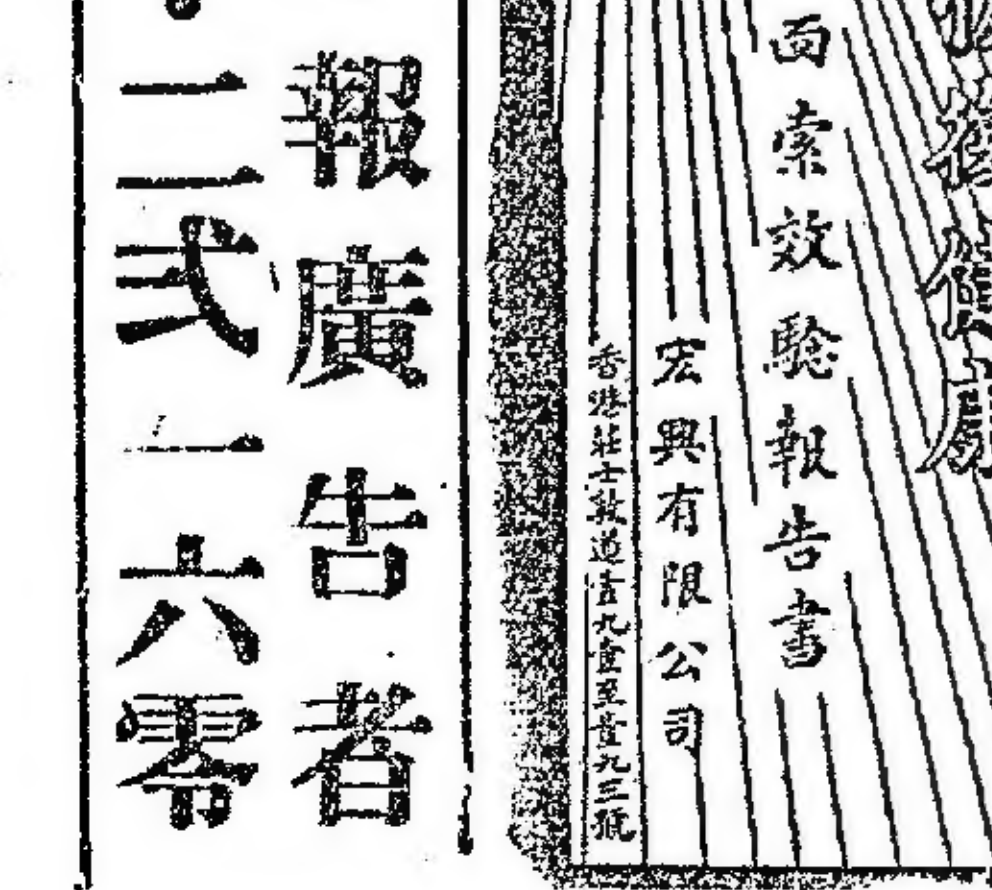 面索效驗報告書
宏興有限公司
香港莊士敦道壹九壹至壹九三號
報廣告者
二二弍一六零